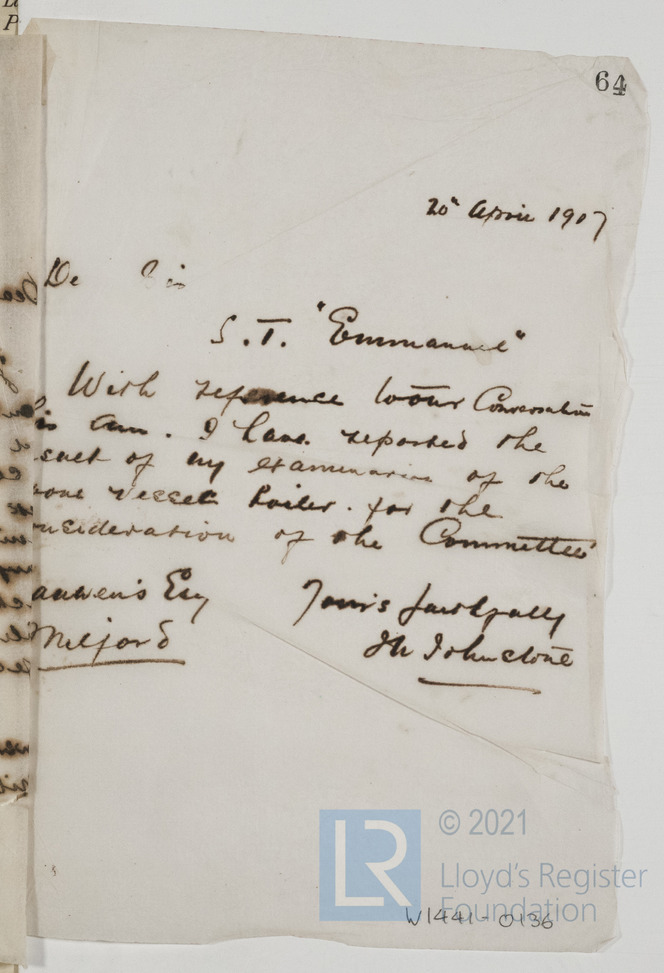 64
20th April 1907
De Sir
S.T. "Emmanuel"
With reference to our Conversation
is am. I have reported the
of my examination of the
Vessel boiler. for the
nsideration of the Committee
auwens Esq
Yours faithfully
Milford
Johnstone
© 2021
LR
Lloyd's Register
Foundation
W1441-0136